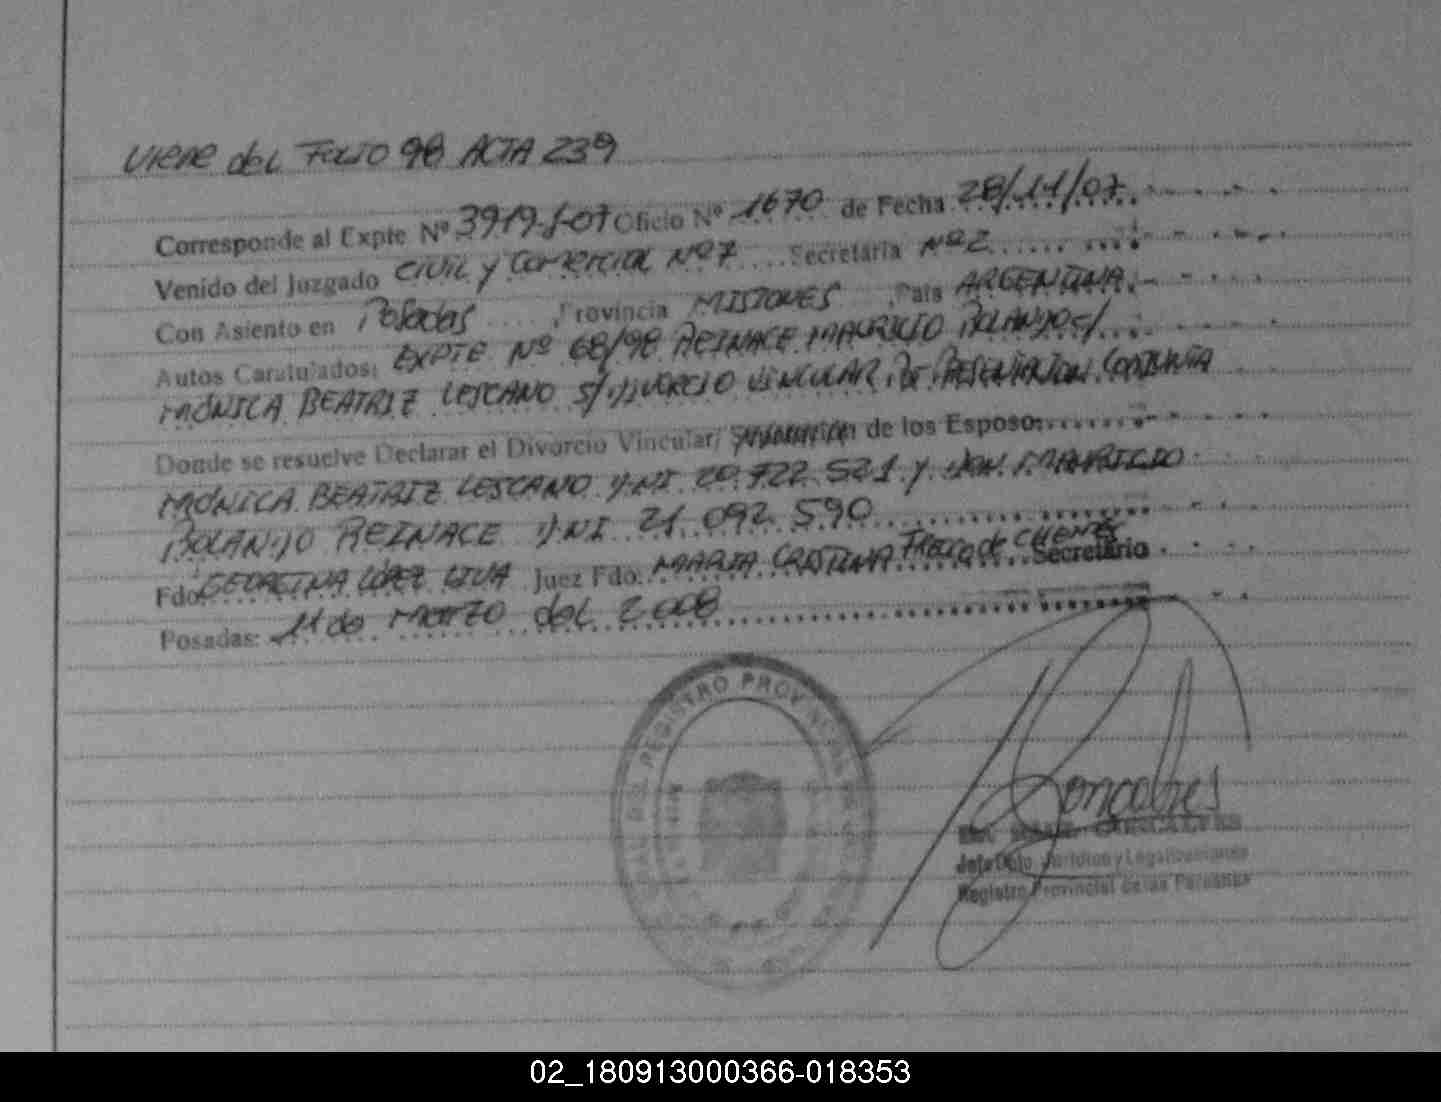 Viene del Folio 98 ACTA 239
Corresponde al Expte Nº 3919-J-07 Oficio Nº 1670 de Fecha 28/11/07
Venido del Juzgado Civil y Comercial Nº 7 Secretaría Nº 2
Con Asiento en Posadas, Provincia MISIONES, País ARGENTINA
Autos Caratulados: EXPTE Nº 68/98 REINACE MAURICIO ROLANDO S/
MÓNICA BEATRIZ LESCANO S/ DIVORCIO VINCULAR POR PRESENTACION CONJUNTA
Donde se resuelve Declarar el Divorcio Vincular/ de los Esposo:
MÓNICA BEATRIZ LESCANO DNI 20.722.521 y MAURICIO
ROLANDO REINACE DNI 21.092.590
Fdo: GEORGINA LÓPEZ LIVA Juez Fdo: MARIA CRISTINA de Secretario
Posadas: 11 de Marzo del 2008
REGISTRO PROVINCIAL DE LAS
Goncalves
GONCALVES
Jefe Dpto. Jurídico y Legalizaciones
Registro Provincial de las Personas
02_180913000366-018353